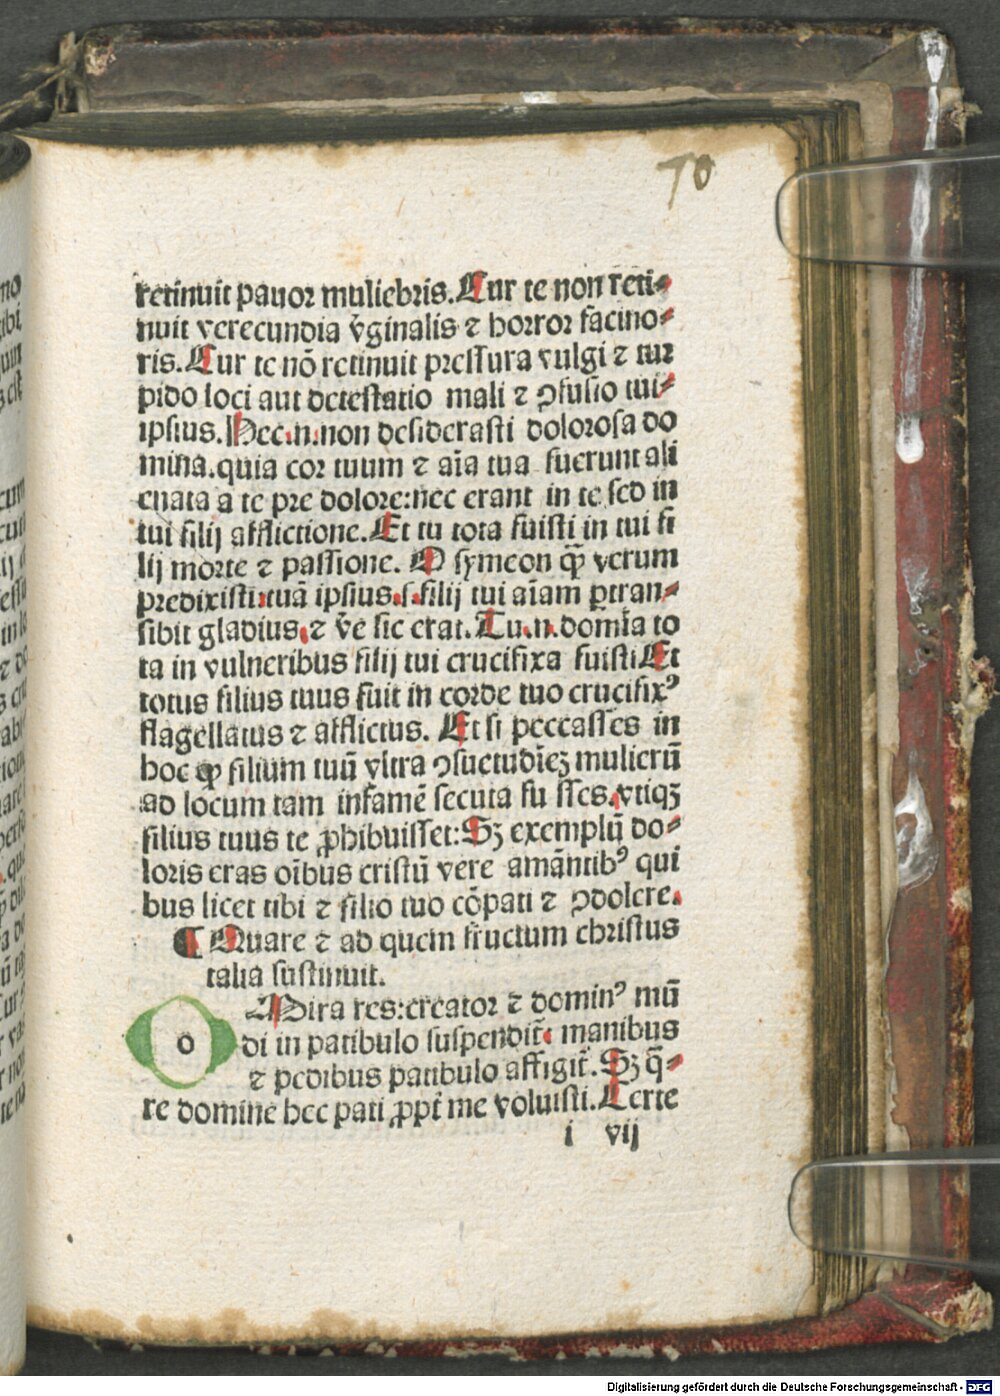 70
retinuit pauor muliebris. Cur te non reti⸗
nuit verecundia v̄ginalis ⁊ horror facino⸗
ris. Cur te nō retinuit pressura vulgi ⁊ tur
pido loci aut detestatio mali ⁊ ꝯfusio tui⸗
ipsius. Hec .n. non desiderasti dolorosa do
mina. quia cor tuum ⁊ aīa tua fuerunt ali
enata a te pre dolore: nec erant in te sed in
tui filij afflictione. Et tu tota fuisti in tui fi
lij morte ⁊ passione. O symeon qꝫ̄ verum
predixisti: tuā ipsius .s. filij tui aīam ꝑtran⸗
sibit gladius, ⁊ v̄e sic erat. Tu .n. domīa to
ta in vulneribus filij tui crucifixa fuisti Et
totus filius tuus fuit in corde tuo crucifixꝰ
flagellatus ⁊ afflictus. Et si peccasses in
hoc ꝙ filium tuū vltra ꝯsuetudīeꝫ mulierū
ad locum tam infamē secuta fu sses. vtiqꝫ
filius tuus te ꝓhibuisset: Sꝫ exemplū do⸗
loris eras oībus cristū vere amāntibꝰ qui
bus licet tibi ⁊ filio tuo cōpati ⁊ ꝯdolere.
¶ Quare ⁊ ad quem fructum christus
talia sustinuit.
o Mira res: creator ⁊ dominꝰ mū
di in patibulo suspendit̄. manibus
⁊ pedibus patibulo affigit̄. Sꝫ q̄⸗
re domine hec pati ꝓpt̄ me voluisti. Certe
i vij
Digitalisierung gefördert durch die Deutsche Forschungsgemeinschaft - DFG